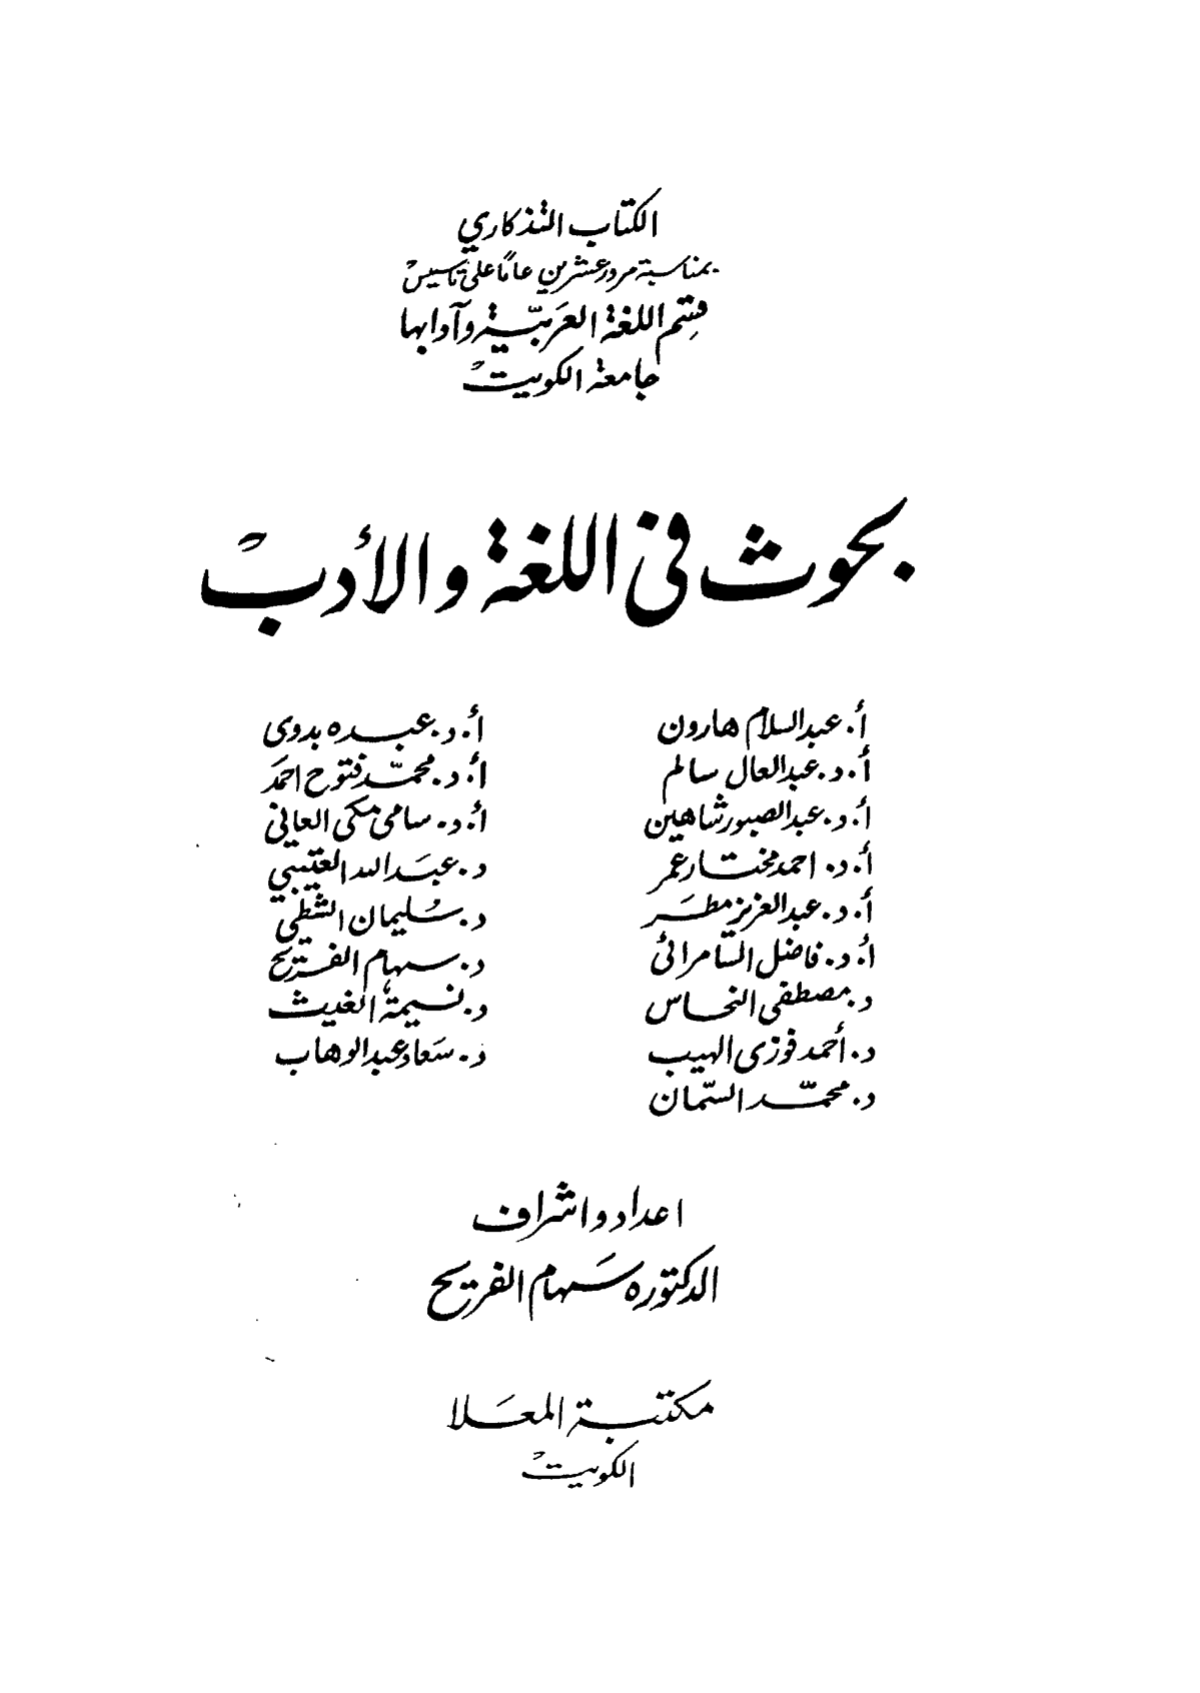 الكتاب التذكاري
بمناسبة مرور عشرين عامًا على تأسيس
قسم اللغة العربيّة وآدابها
جامعة الكويت
بحوث في اللغة والأدب
أ. عبدالسلام هارون
أ.د. عبدالعال سالم
أ.د. عبدالصبور شاهين
أ.د. احمد مختار عمر
أ.د. عبدالعزيز مطر
أ.د. فاضل السامرائى
د. مصطفى النحاس
د. أحمد فوزى الهيب
د. محمّد السمّان
أ.د. عبده بدوى
أ.د. محمّد فتوح احمد
أ.د. سامى مكى العاني
د. عبدالله العتيبي
د. سُليمان الشطي
د. سهام الفريح
د. نسيمة الغيث
د. سعاد عبدالوهاب
اعداد واشراف
الدكتوره سهام الفريح
مكتبة المعلا
الكويت